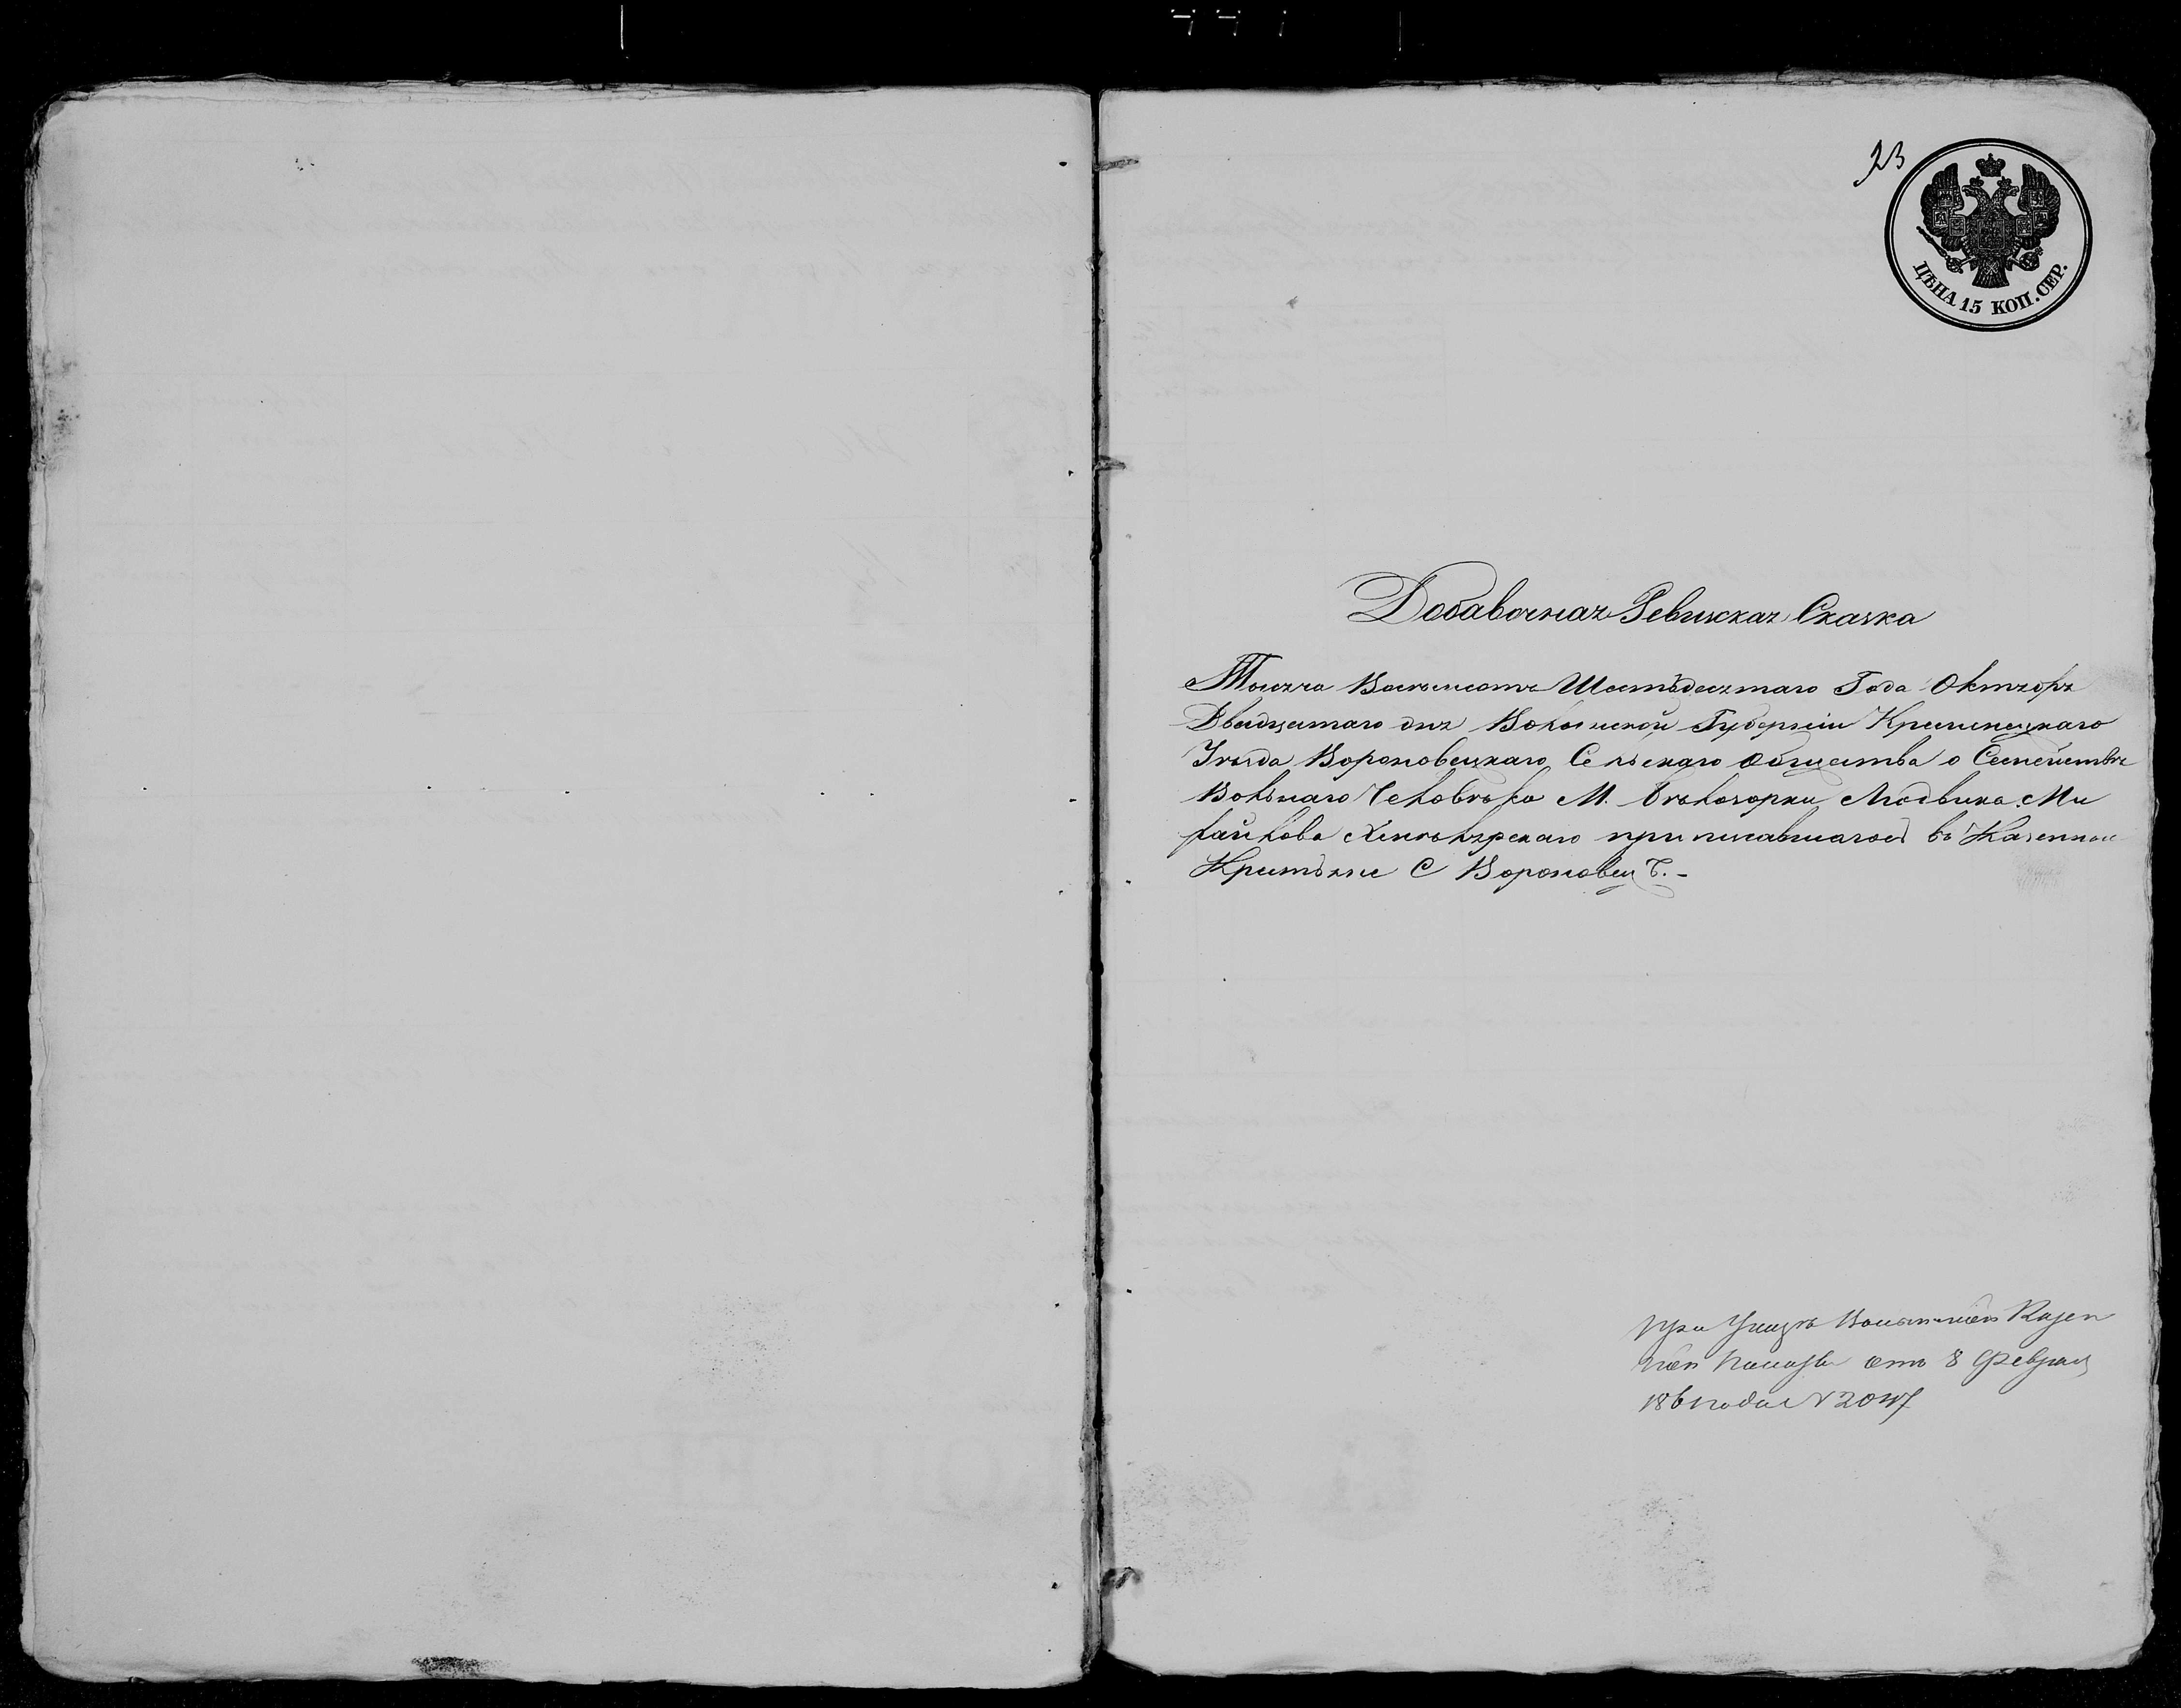 23
ЦѢНА 15 КОП. СЕР.
Добавочная Ревиская Сказка
Тысяча Восемьсотъ Шестьдесятаго Года Октября
Двадцятаго дня Волынской Губерніи Кременецкаго
Уѣзда Вороновецкаго Сельскаго Общества о Семействѣ
Вольнаго Человѣка М. Бѣлозорки Людвика Ми
хайлова приписавшагося въ Казенные
Крестьяне С Вороновец Ъ.-
при Указѣ Волынской Казен
ной Палаты отъ 8 Февраля
1861 года N